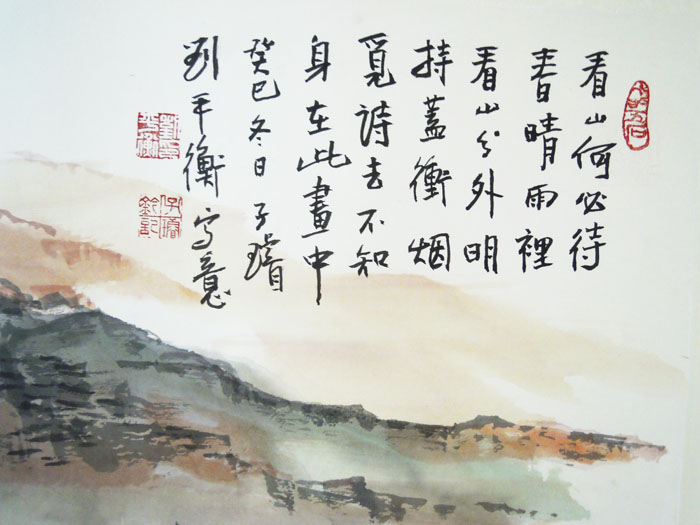 看山何必待
春晴雨裡
看山分外明
持蓋衝烟
覓詩去不知
身在此畫中
癸巳冬日子璿
刘平衡写意